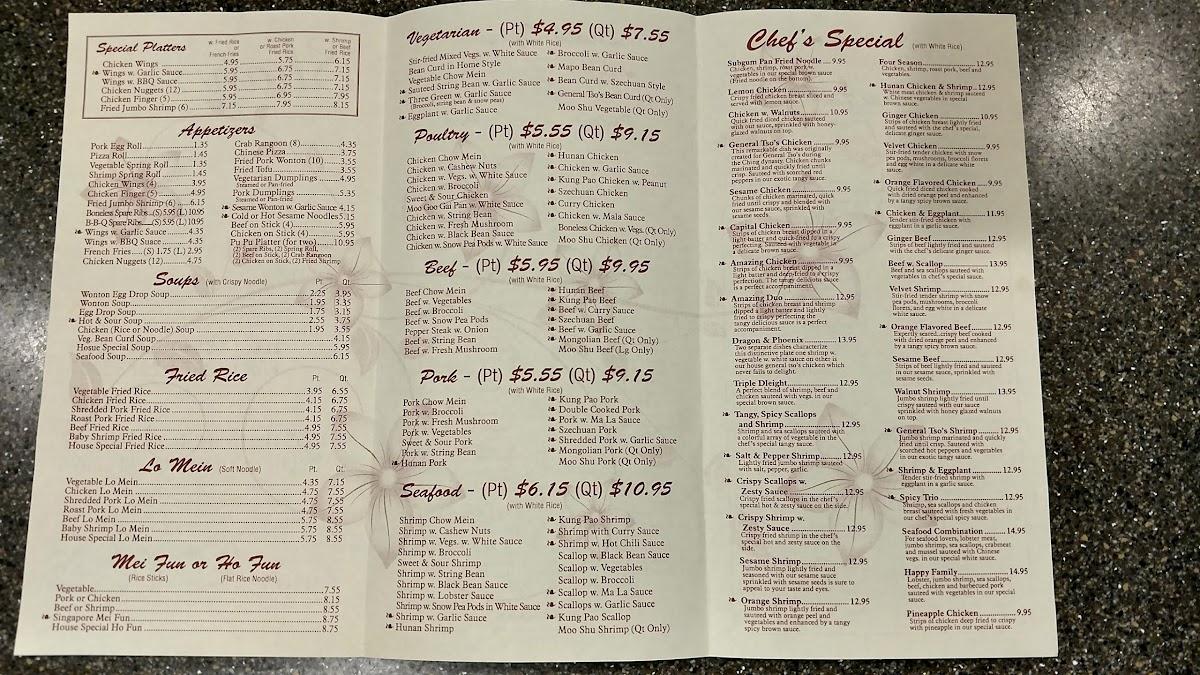 Special Platters
w. Fried Rice or French Fries
w. Chicken or Roast Pork Fried Rice
w. Shrimp or Beef Fried Rice
Chicken Wings 4.95 5.75 6.15
❧ Wings w. Garlic Sauce 5.95 6.75 7.15
Wings w. BBQ Sauce 5.95 6.75 7.15
Chicken Nuggets (12) 5.95 6.75 7.15
Chicken Finger (5) 5.95 6.75 7.15
Fried Jumbo Shrimp (6) 7.15 7.95 8.15
Appetizers
Pork Egg Roll 1.35
Pizza Roll 1.45
Vegetable Spring Roll 1.35
Shrimp Spring Roll 1.45
Chicken Wings (4) 3.95
Chicken Finger (5) 4.95
Fried Jumbo Shrimp (6) 6.15
Boneless Spare Ribs (S) 5.95 (L) 10.95
B-B-Q Spare Ribs (S) 5.95 (L) 10.95
❧ Wings w. Garlic Sauce 4.35
Wings w. BBQ Sauce 4.35
French Fries (S) 1.75 (L) 2.95
Chicken Nuggets (12) 4.75
Crab Rangoon (8) 4.35
Chinese Pizza 3.75
Fried Pork Wonton (10) 3.55
Fried Tofu 3.55
Vegetarian Dumplings 4.95
Steamed or Pan-fried
Pork Dumplings 5.35
Steamed or Pan-fried
❧ Sesame Wonton w. Garlic Sauce 4.15
❧ Cold or Hot Sesame Noodles 5.15
Beef on Stick (4) 5.95
Chicken on Stick (4) 5.95
Pu Pu Platter (for two) 10.95
(2) Spare Ribs, (2) Spring Roll,
(2) Beef on Stick, (2) Crab Rangoon
(2) Chicken on Stick, (2) Fried Shrimp
Soups (with Crispy Noodle) Pt Qt
Wonton Egg Drop Soup 2.25 3.95
Wonton Soup 1.95 3.35
Egg Drop Soup 1.75 3.15
❧ Hot & Sour Soup 2.55 3.75
Chicken (Rice or Noodle) Soup 1.95 3.55
Veg. Bean Curd Soup 4.15
Hosue Special Soup 5.95
Seafood Soup 6.15
Fried Rice Pt. Qt.
Vegetable Fried Rice 3.95 6.55
Chicken Fried Rice 4.15 6.75
Shredded Pork Fried Rice 4.15 6.75
Roast Pork Fried Rice 4.15 6.75
Beef Fried Rice 4.95 7.55
Baby Shrimp Fried Rice 4.95 7.55
House Special Fried Rice 4.95 7.55
Lo Mein (Soft Noodle) Pt. Qt.
Vegetable Lo Mein 4.35 7.15
Chicken Lo Mein 4.75 7.55
Shredded Pork Lo Mein 4.75 7.55
Roast Pork Lo Mein 4.75 7.55
Beef Lo Mein 5.75 8.55
Baby Shrimp Lo Mein 5.75 8.55
House Special Lo Mein 5.75 8.55
Mei Fun or Ho Fun
(Rice Sticks) (Flat Rice Noodle)
Vegetable 7.55
Pork or Chicken 8.15
Beef or Shrimp 8.55
❧ Singapore Mei Fun 8.75
House Special Ho Fun 8.75
Vegetarian - (Pt) $4.95 (Qt) $7.55
(with White Rice)
Stir-fried Mixed Vegs. w. White Sauce
Bean Curd in Home Style
Vegetable Chow Mein
❧ Sauteed String Bean w. Garlic Sauce
❧ Three Green w. Garlic Sauce
(Broccoli, string bean & snow peas)
❧ Eggplant w. Garlic Sauce
❧ Broccoli w. Garlic Sauce
❧ Mapo Bean Curd
❧ Bean Curd w. Szechuan Style
❧ General Tso's Bean Curd (Qt Only)
Moo Shu Vegetable (Qt Only)
Poultry - (Pt) $5.55 (Qt) $9.15
(with White Rice)
Chicken Chow Mein
Chicken w. Cashew Nuts
Chicken w. Vegs. w. White Sauce
Chicken w. Broccoli
Sweet & Sour Chicken
Moo Goo Gai Pan w. White Sauce
Chicken w. String Bean
Chicken w. Fresh Mushroom
Chicken w. Black Bean Sauce
Chicken w. Snow Pea Pods w. White Sauce
❧ Hunan Chicken
❧ Chicken w. Garlic Sauce
❧ Kung Pao Chicken w. Peanut
❧ Szechuan Chicken
❧ Curry Chicken
❧ Chicken w. Mala Sauce
Boneless Chicken w. Vegs. (Qt Only)
Moo Shu Chicken (Qt Only)
Beef - (Pt) $5.95 (Qt) $9.95
(with White Rice)
Beef Chow Mein
Beef w. Vegetables
Beef w. Broccoli
Beef w. Snow Pea Pods
Pepper Steak w. Onion
Beef w. String Bean
Beef w. Fresh Mushroom
❧ Hunan Beef
❧ Kung Pao Beef
❧ Beef w. Curry Sauce
❧ Szechuan Beef
❧ Beef w. Garlic Sauce
❧ Mongolian Beef (Qt Only)
Moo Shu Beef (Lg Only)
Pork - (Pt) $5.55 (Qt) $9.15
(with White Rice)
Pork Chow Mein
Pork w. Broccoli
Pork w. Fresh Mushroom
Pork w. Vegetables
Sweet & Sour Pork
Pork w. String Bean
❧ Hunan Pork
❧ Kung Pao Pork
❧ Double Cooked Pork
❧ Pork w. Ma La Sauce
❧ Szechuan Pork
❧ Shredded Pork w. Garlic Sauce
❧ Mongolian Pork (Qt Only)
Moo Shu Pork (Qt Only)
Seafood - (Pt) $6.15 (Qt) $10.95
(with White Rice)
Shrimp Chow Mein
Shrimp w. Cashew Nuts
Shrimp w. Vegs. w. White Sauce
Shrimp w. Broccoli
Sweet & Sour Shrimp
Shrimp w. String Bean
Shrimp w. Black Bean Sauce
Shrimp w. Lobster Sauce
Shrimp w. Snow Pea Pods in White Sauce
❧ Shrimp w. Garlic Sauce
❧ Hunan Shrimp
❧ Kung Pao Shrimp
❧ Shrimp with Curry Sauce
❧ Shrimp w. Hot Chili Sauce
Scallop w. Black Bean Sauce
Scallop w. Vegetables
Scallop w. Broccoli
❧ Scallop w. Ma La Sauce
❧ Scallops w. Garlic Sauce
❧ Kung Pao Scallop
Moo Shu Shrimp (Qt Only)
Chef's Special (with White Rice)
Subgum Pan Fried Noodle 9.95
Chicken, shrimp, roast pork w.
vegetables in our special brown sauce
(Fried noodle on the bottom).
Lemon Chicken 9.95
Crispy fried chicken breast sliced and
served with lemon sauce.
Chicken w. Walnuts 10.95
Quick fried diced chicken sauteed
with our sauce, sprinkled with honey-
glazed walnuts on top.
❧ General Tso's Chicken 9.95
This remarkable dish was originally
created for General Tso's during
the Ching dynasty. Chicken chunks
marinated and quickly fried until
crisp. Sauteed with scorched red
peppers in our exotic tangy sauce.
Sesame Chicken 9.95
Chunks of chicken marinated, quick
fried until crispy and blended with
our sesame sauce, sprinkled with
sesame seeds.
❧ Capital Chicken 9.95
Strips of chicken breast dipped in a
light batter and quick-fried in a crispy
perfection. Sauteed with vegetable in
a delicate brown sauce.
❧ Amazing Chicken 9.95
Strips of chicken breast dipped in a
light batter and deep-fried in a crispy
perfection. The tangy delicious sauce
is a perfect accompaniment.
❧ Amazing Duo 12.95
Strips of chicken breast and shrimp
dipped a light batter and lightly
fried to crispy perfecting the
tangy delicious sauce is a perfect
accompaniment.
Dragon & Phoenix 13.95
Two separate dishes characterize
this distinctive plate one shrimp w.
vegetable w. white sauce on other is
our house general tso's chicken which
never fails to delight.
Triple Dleight 12.95
A perfect blend of shrimp, beef and
chicken sauteed with vegs. in our
special brown sauce.
❧ Tangy, Spicy Scallops
and Shrimp 12.95
Shrimp and sea scallops sauteed with
a colorful array of vegetable in the
chef's special tangy sauce.
❧ Salt & Pepper Shrimp 12.95
Lightly fried jumbo shrimp sauteed
with salt, pepper, garlic.
❧ Crispy Scallops w.
Zesty Sauce 12.95
Crispy fried scallops in the chef's
special hot & zesty sauce on the side.
❧ Crispy Shrimp w.
Zesty Sauce 12.95
Crispy fried shrimp in the chef's
special hot and zesty sauce on the
side.
Sesame Shrimp 12.95
Jumbo shrimp lightly fried and
seasoned with our sesame sauce
sprinkled with sesame seeds is sure to
appeal to your taste and eyes.
❧ Orange Shrimp 12.95
Jumbo shrimp lightly fried and
sauteed with orange peel and
vegetables and enhanced by a tangy
spicy brown sauce.
Four Season 12.95
Chicken, shrimp, roast pork, beef and
vegetables.
❧ Hunan Chicken & Shrimp 12.95
White meat chicken & shrimp sauteed
w. Chinese vegetables in special
brown sauce.
Ginger Chicken 10.95
Strips of chicken breast lightly fried
and sauteed with the chef's special,
delicate ginger sauce.
Velvet Chicken 9.95
Stir-fried tender chicken with snow
pea pods, mushrooms, broccoli florets
and egg white in a delicate white
sauce.
❧ Orange Flavored Chicken 9.95
Quick fried diced chicken cooked
with dried orange peel and enhanced
by a tangy spicy brown sauce.
❧ Chicken & Eggplant 11.95
Tender stir-fried chicken with
eggplant in a garlic sauce.
Ginger Beef 12.95
Strips of beef lightly fried and sauteed
with the chef's special, delicate ginger
sauce.
Beef w. Scallop 13.95
Beef and sea scallops sauteed with
vegetables in chef's special sauce.
Velvet Shrimp 12.95
Stir-fried tender shrimp with snow
pea pods, mushrooms, broccoli
florets, and egg white in a delicate
white sauce.
❧ Orange Flavored Beef 12.95
Expertly seared, crispy beef cooked
with dried orange peel and enhanced
by a tangy spicy brown sauce.
Sesame Beef 12.95
Strips of beef lightly fried and sauteed
with our sesame sauce, sprinkled with
sesame seeds.
Walnut Shrimp 13.95
Jumbo shrimp lightly fried until
crispy sauteed with our sauce,
sprinkled with honey glazed walnuts
on top.
❧ General Tso's Shrimp 12.95
Jumbo shrimp marinated and quickly
fried until crisp. Sauteed with
scorched hot peppers and vegetables
in our exotic tangy sauce.
❧ Shrimp & Eggplant 12.95
Tender stir-fried shrimp with
eggplant in a garlic sauce.
❧ Spicy Trio 12.95
Shrimp, sea scallops and chicken
breast sauteed with fresh vegetables in
our chef's special spicy sauce.
Seafood Combination 14.95
For seafood lovers, lobster meat,
jumbo shrimp, sea scallops, crabmeat
and mussel sauteed with Chinese
vegs. in our special white sauce.
Happy Family 14.95
Lobster, jumbo shrimp, sea scallops,
beef, chicken and barbecued pork
sauteed with vegetables in our special
sauce.
Pineapple Chicken 9.95
Strips of chicken deep fried to crispy
with pineapple in our special sauce.